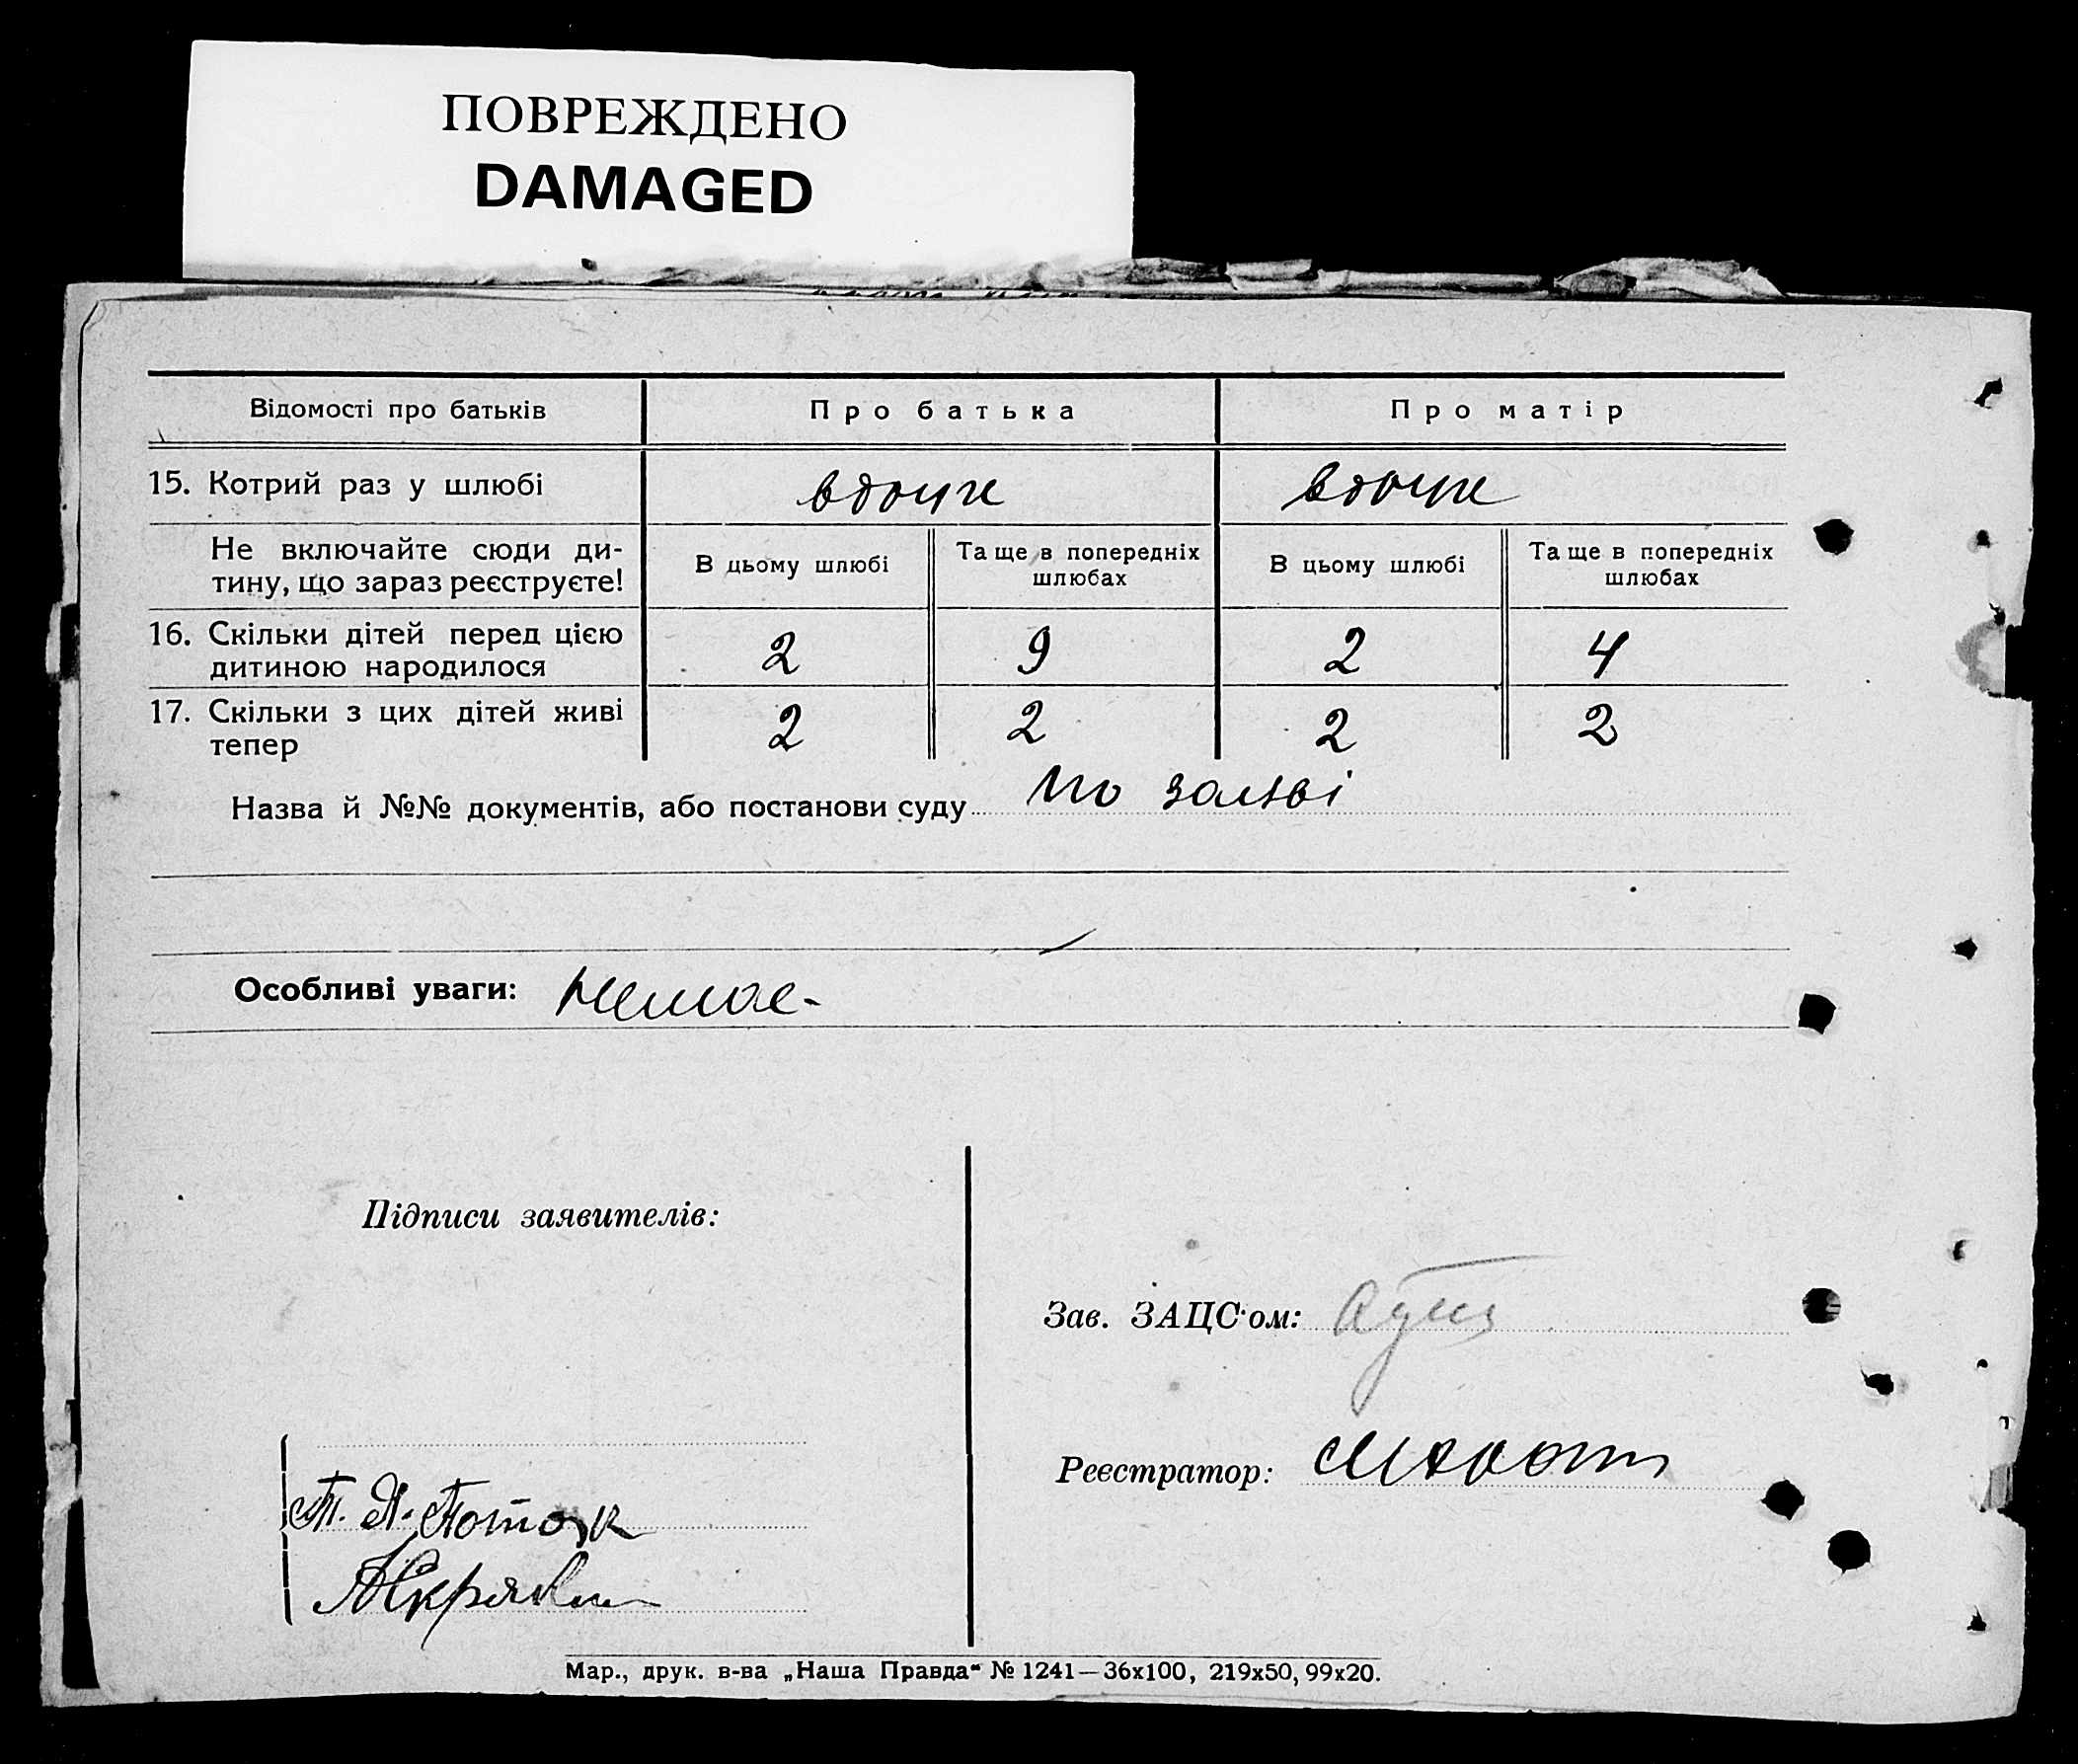 ПОВРЕЖДЕНО
DAMAGED
Відомості про батьків
Про батька
Про матір
15. Котрий раз у шлюбі
вдруге
вдруге
Не включайте сюди ди-
тину, що зараз реєструєте!
В цьому шлюбі
Та ще в попередніх
шлюбах
В цьому шлюбі
Та ще в попередніх
шлюбах
16. Скільки дітей перед цією
дитиною народилося
2
9
2
4
17. Скільки з цих дітей живі
тепер
2
2
2
2
Назва й №№ документів, або постанови суду по заяві
Особливі уваги: немає-
Підписи заявителів:
Зав. ЗАЦС'ом:
Реєстратор:
Мар., друк. в-ва „Наша Правда" № 1241—36х100, 219х50, 99х20.